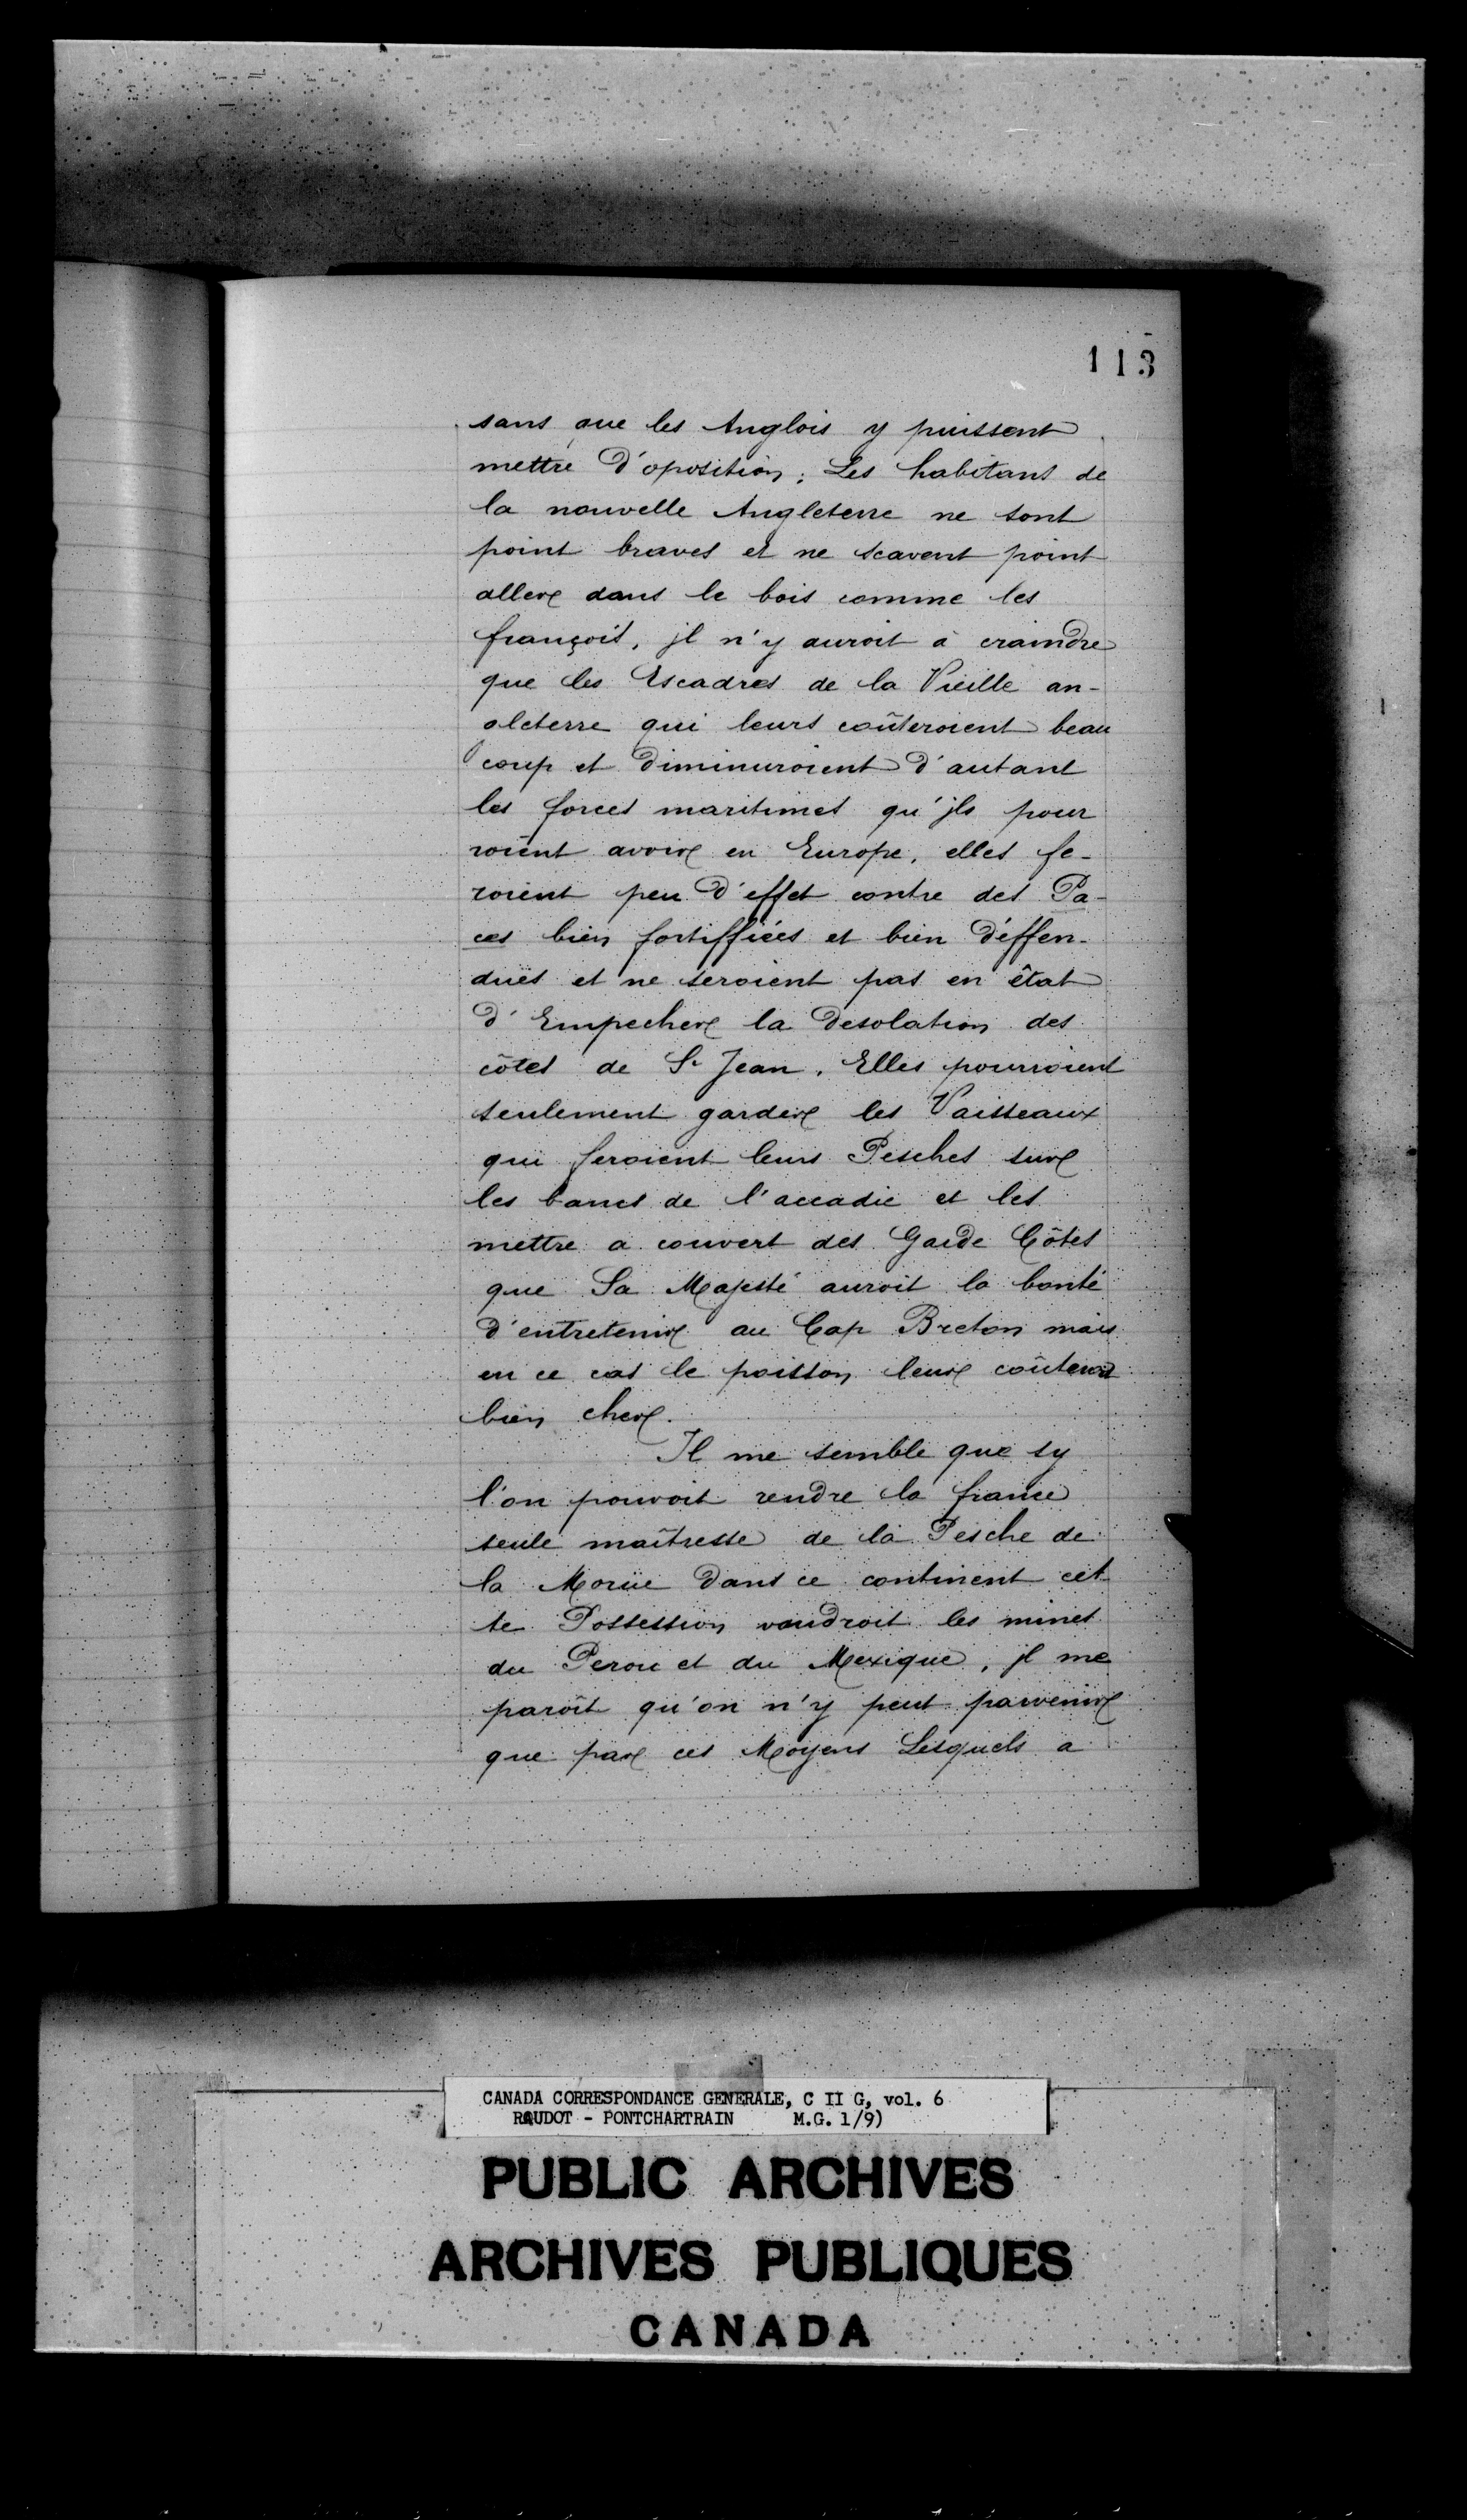 113
sans que les Anglois y puissent
mettre d'oposition; Les habitans de
la nouvelle Angleterre ne sont
point braves et ne scavent point
aller dans le bois comme les
françois, jl n'y auroit à craindre
que les Escadres de la Vieille an-
gleterre qui leurs coûteroient beau
coup et diminuroient d'autant
les forces maritimes qu'jls pour
roient avoir en Europe, elles fe-
roient peu d'effet contre des Pa-
ces bien fortiffiées et bien déffen-
duës et ne seroient pas en êtat
d'Empecher la desolation des
côtes de St Jean. Elles pourroient
seulement garder les Vaisseaux
qui feroient leurs Pesches sur
les bancs de l'accadie et les
mettre a couvert des Garde Côtes
que Sa Majesté auroit la bonté
d'entretenir au Cap Breton mais
en ce cas le poisson leur coûteroit
bien cher.
Il me semble que sy
l'on pouvoit rendre la france
seule maîtresse de la Pesche de
la Moruë dans ce continent cet
te Possession vaudroit les mines
du Perou et du Mexique, jl me
paroît qu'on n'y peut parvenir
que par ces Moyens Lesquels a
CANADA CORRESPONDANCE GENERALE, C II G, vol. 6
RAUDOT - PONTCHARTRAIN M.G. 1/9)
PUBLIC ARCHIVES
ARCHIVES PUBLIQUES
CANADA